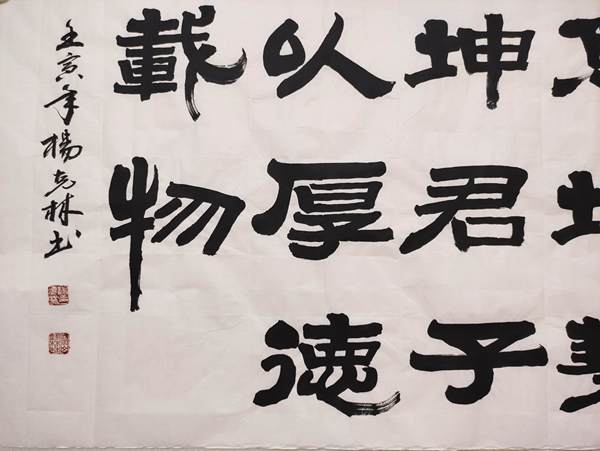 坤君子
以厚德
載物
壬寅年楊克林书